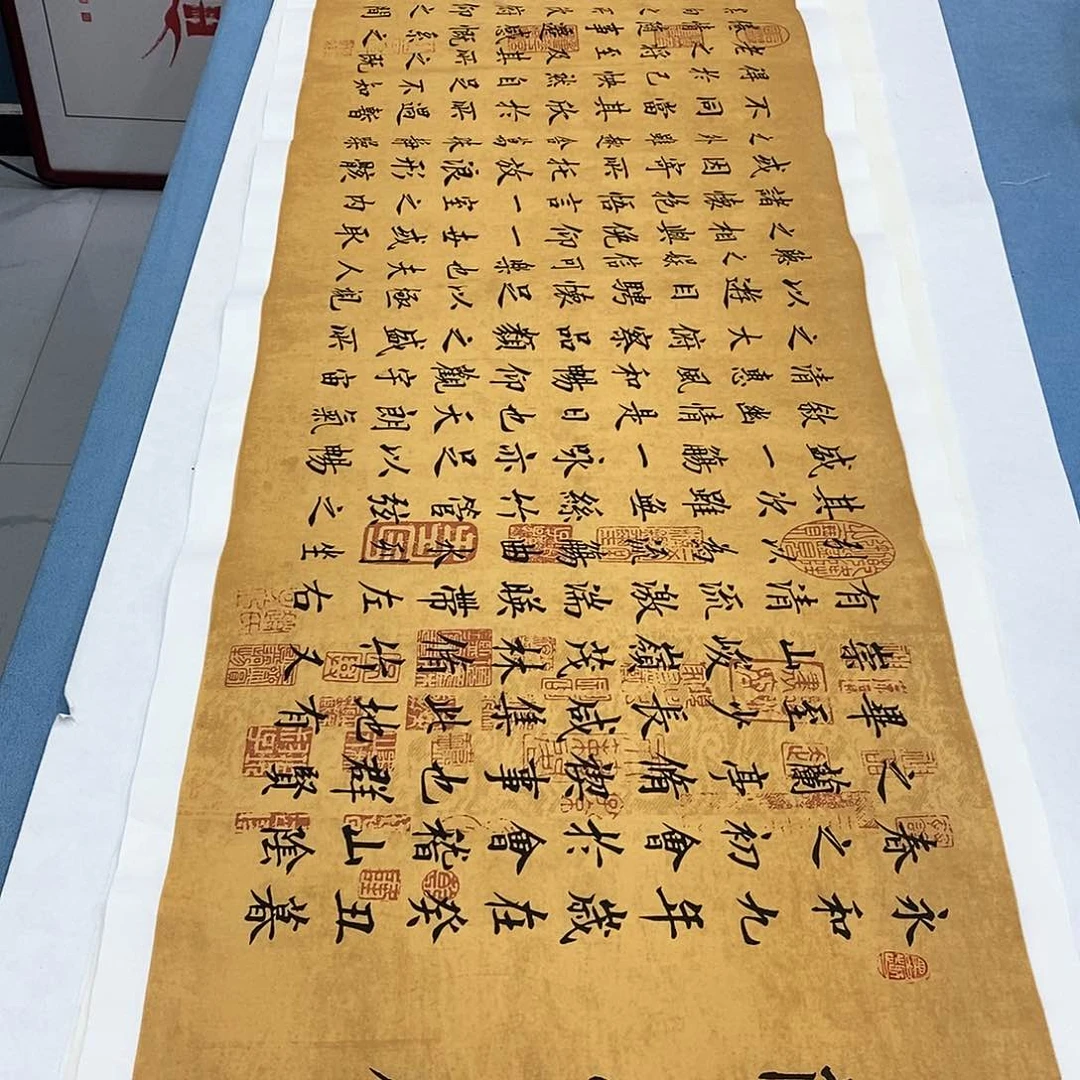 永和九年歲在癸丑暮
春之初會於會稽山陰
之蘭亭脩禊事也群賢
畢至少長咸集此地有
崇山峻嶺茂林脩竹又
有清流激湍暎帶左右
引以為流觴曲水列坐
其次雖無絲竹管弦之
盛一觴一詠亦足以暢
敘幽情是日也天朗氣
清惠風和暢仰觀宇宙
之大俯察品類之盛所
以遊目騁懷足以極視
聽之娛信可樂也夫人
之相與俛仰一世或取
諸懷抱悟言一室之內
或因寄所託放浪形骸
之外雖趣舍萬殊靜躁
不同當其欣於所遇暫
得於己怏然自足不知
老之將至及其所之既
惓情隨事遷感慨係之